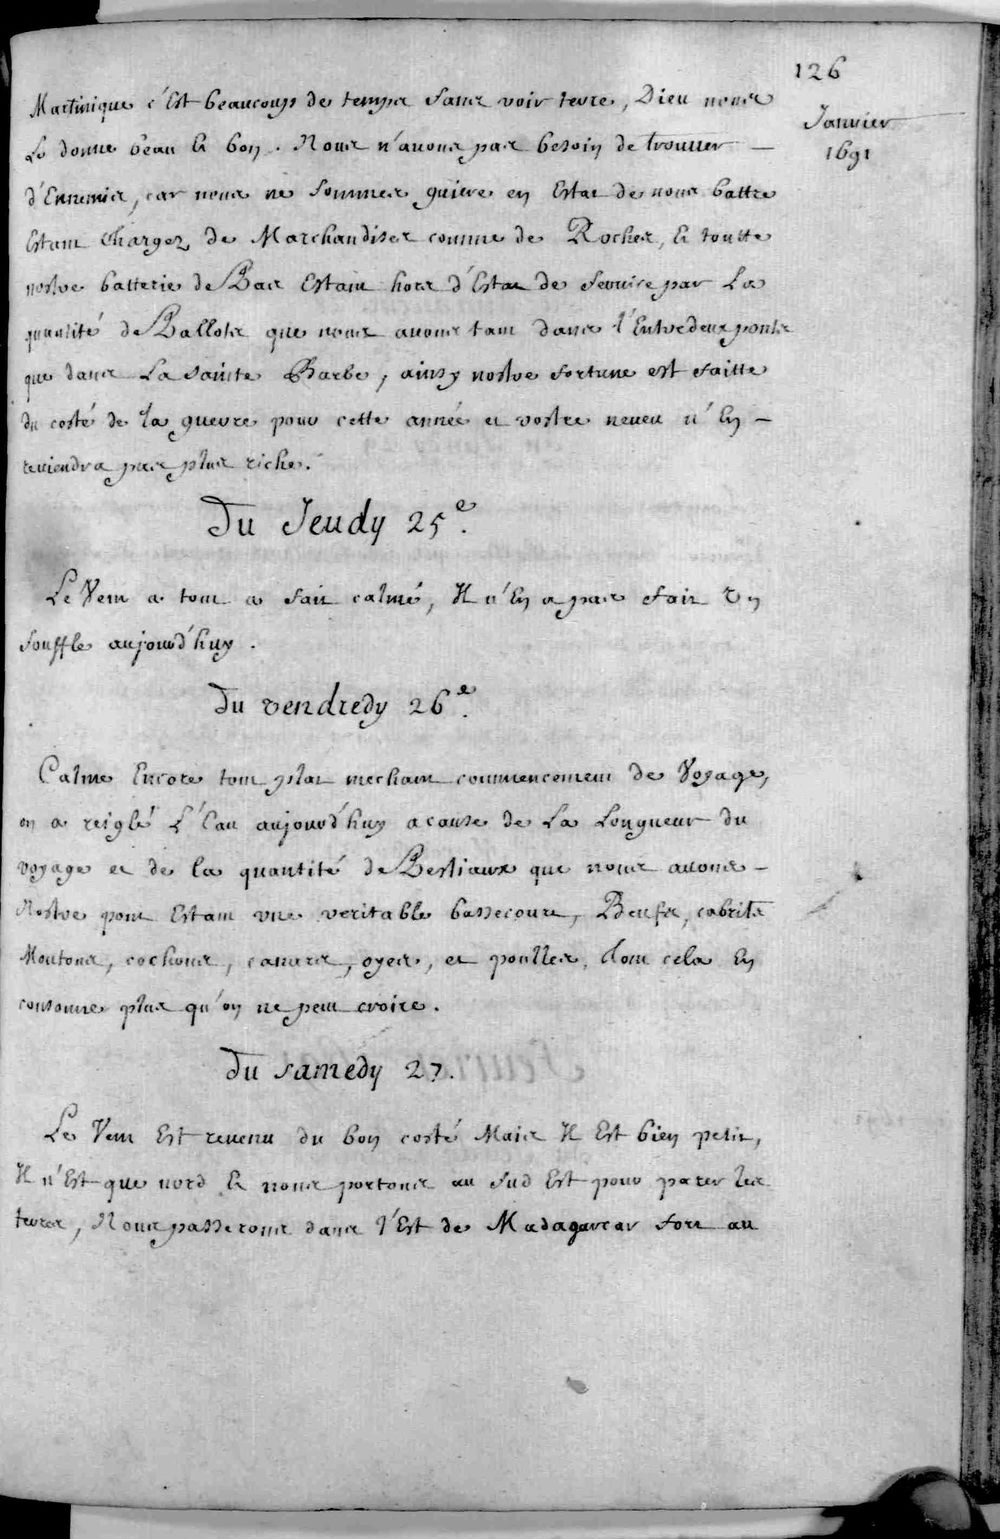 126
Janvier
1691
Martinique c'Est beaucoup de temps sans voir terre, Dieu nous
Le donne beau & bon. Nous n'auons pas besoin de trouuer
d'Ennemis, car nous ne sommes guiere en Estat de nous battre
Estant Chargez de Marchandises comme de Roches, & toutte
nostre batterie de Bas Estant hors d'Estat de seruice par La
quantité de Ballots que nous auons tant dans l'Entredeux ponts
que dans La sainte Barbe, ainsy nostre fortune est faitte
du costé de la guerre pour cette année et vostre neueu n'En
reuiendra pas plus riche.
Du Jeudy 25e.
Le Vent a tout a fait calmé, Il n'En a pas fait Un
souffle aujourd'huy.
Du vendredy 26e.
Calme Encore tout plat mechant commencement de Voyage,
on a reiglé L'Eau aujourd'huy a cause de La Longueur du
voyage et de la quantité de Bestiaux que nous auons
Nostre pont Estant vne veritable bassecourt, Beufs, cabrits
Moutons, cochons, canars, oyes, et poulles, tout cela En
consomme plus qu'on ne peut croire.
Du samedy 27.
Le Vent Est reuenu du bon costé Mais Il Est bien petit,
Il n'Est que nord & nous portons au sud Est pour parer les
terres, Nous passerons dans l'Est de Madagascar fort au